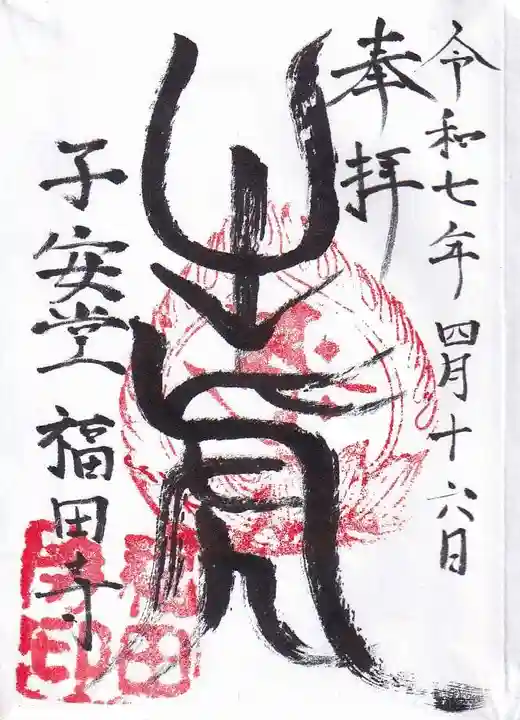 令和七年 四月十六日
奉拝
子安堂 福田寺
福田
寺印